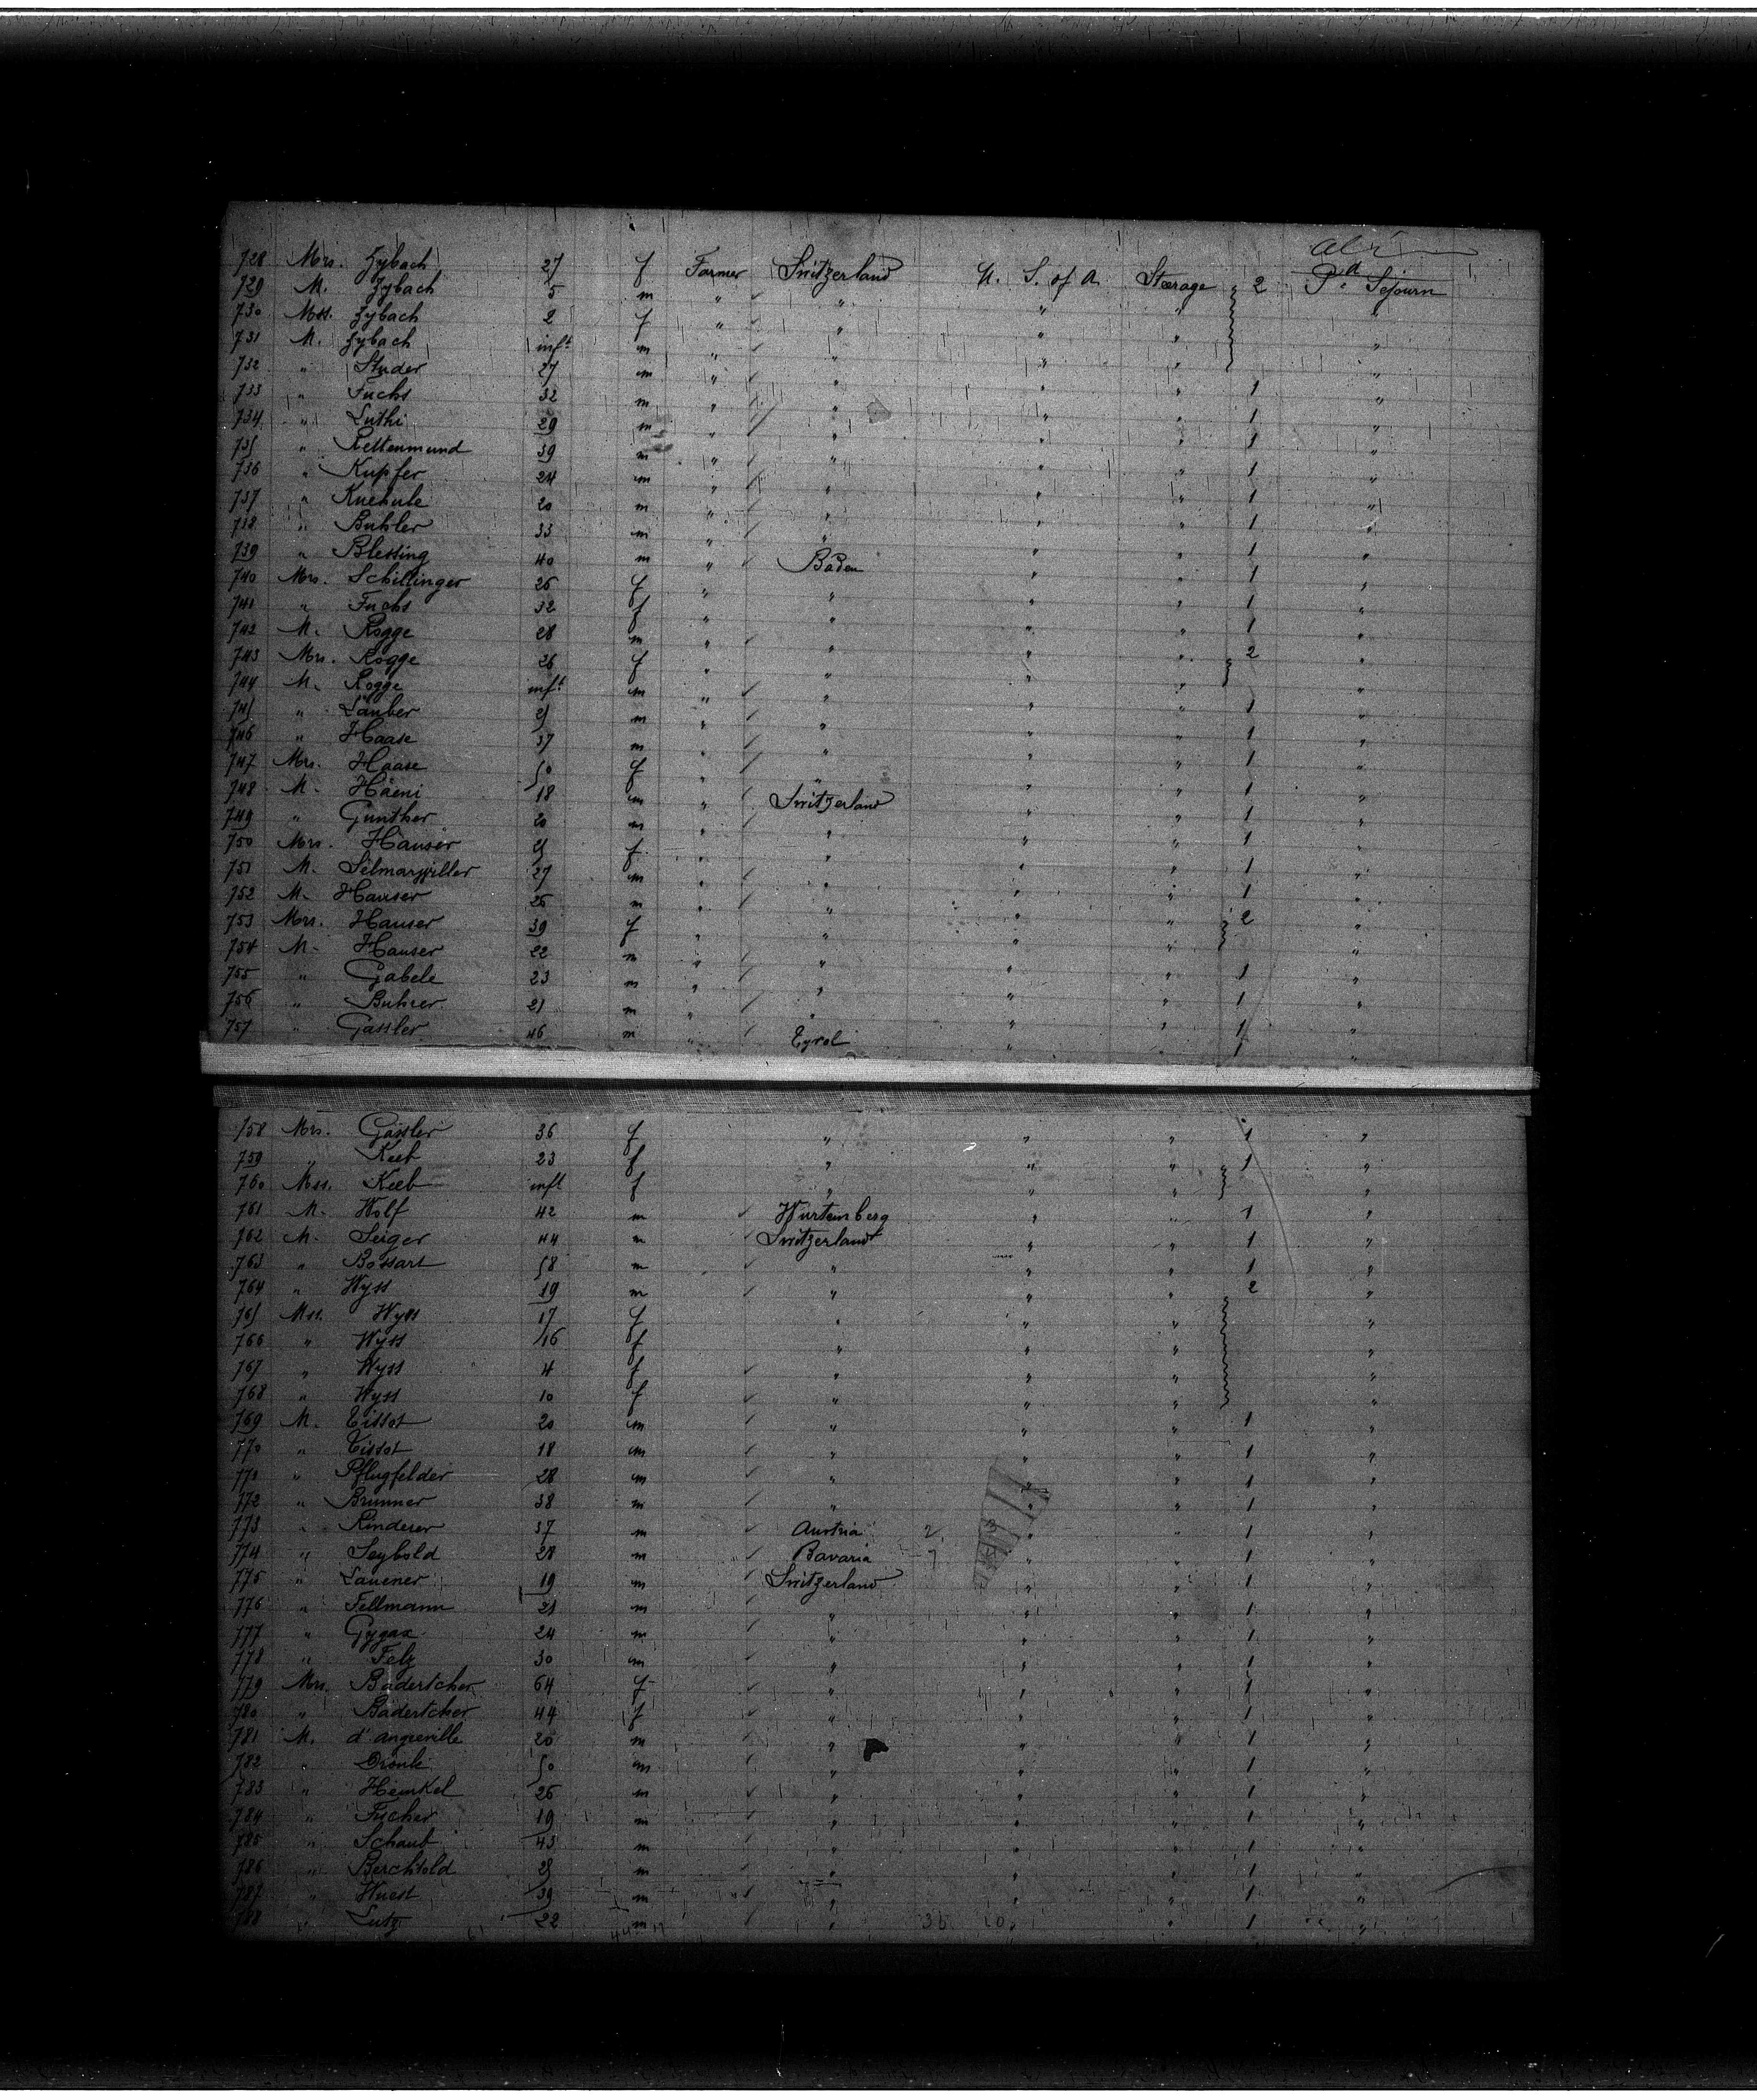 728 Mrs. Zybach 27 f Farmer Switzerland U. S. of A. Steerage 2 Pd Sejourn
729 M. Zybach 5 m " " " " "
730 Mss. Zybach 2 f " " " " "
731 M. Zybach inft m " " " " "
732 " Studer 27 m " " " " 1 "
733 " Fuchs 32 m " " " " 1 "
734 " Luthi 29 m " " " " 1 "
735 " Rettenmund 39 m " " " " 1 "
736 " Kupfer 24 m " " " " 1 "
737 " 20 m " " " " 1 "
738 " Buhler 33 m " " " " 1 "
739 " Blessing 40 m " Baden " " 1 "
740 Mrs. Schillinger 26 f " " " " 1 "
741 " Fuchs 32 f " " " " 1 "
742 M. Rogge 28 m " " " " 2 "
743 Mrs. Rogge 26 f " " " " "
744 M. Rogge inft m " " " " "
745 " Lauber 25 m " " " " 1 "
746 " Haase 37 m " " " " 1 "
747 Mrs. Haase 50 f " " " " 1 "
748 M. Haeni 18 m " Switzerland " " 1 "
749 " Gunther 20 m " " " " 1 "
750 Mrs. Hauser 25 f " " " " 1 "
751 M. 27 m " " " " 1 "
752 M. Hauser 26 m " " " " 1 "
753 Mrs. Hauser 39 f " " " " 2 "
754 M. Hauser 22 m " " " " "
755 " Gabele 23 m " " " " 1 "
756 " Buhrer 21 m " " " " 1 "
757 " Gassler 46 m " Tyrol " " 1 "
758 Mrs. Gassler 36 f " " " 1 "
759 " Keeb 23 f " " " 1 "
760 Mss. Keeb inft f " " " "
761 M. Wolf 42 m Wurtemberg " " 1 "
762 M. Seiger 44 m Switzerland " " 1 "
763 " Bossart 58 m " " " 1 "
764 " Wyss 19 m " " " 2 "
765 Mss. Wyss 17 f " " " "
766 " Wyss 16 f " " " "
767 " Wyss 4 f " " " "
768 " Wyss 10 f " " " "
769 M. Tissot 20 m " " " 1 "
770 " Tissot 18 m " " " 1 "
771 " Pflugfelder 28 m " " " 1 "
772 " Brunner 38 m " " " 1 "
773 " Rinderer 37 m Austria " " 1 "
774 " Seybold 28 m Bavaria " " 1 "
775 " Lauener 19 m Switzerland " " 1 "
776 " Fellmann 21 m " " " 1 "
777 " Gygax 24 m " " " 1 "
778 " Felz 30 m " " " 1 "
779 Mrs. Badertcher 64 f " " " 1 "
780 " Badertcher 44 f " " " 1 "
781 M. d'angreville 20 m " " " 1 "
782 " 50 m " " " 1 "
783 " Henrkel 26 m " " " 1 "
784 " Fischer 19 m " " " 1 "
785 " Schaub 43 m " " " 1 "
786 " Berchtold 25 m " " " 1 "
787 " Wuest 39 m " " " 1 "
788 " Lutz 22 m " " " 1 "